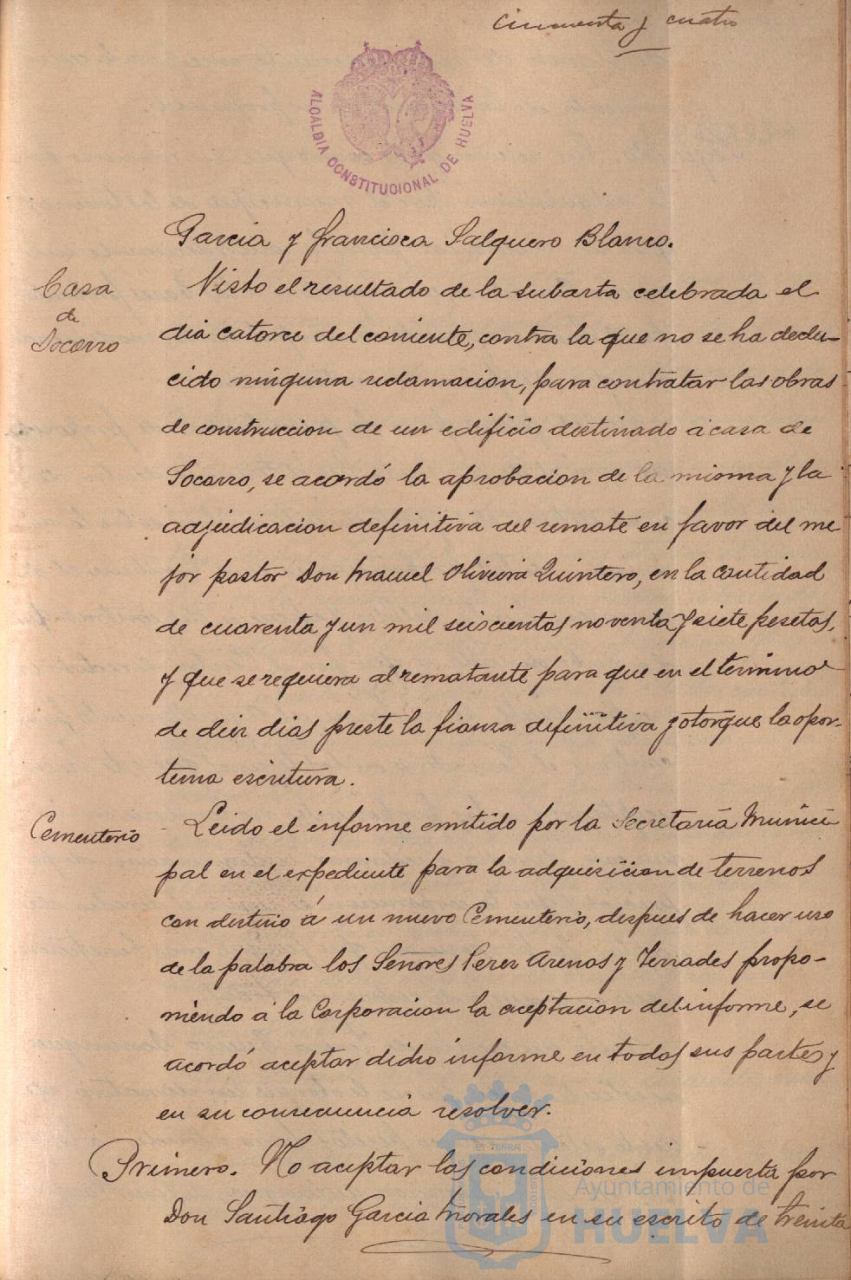 cincuenta y cuatro
ALCALDIA CONSTITUCIONAL DE HUELVA
Garcia y Francisca Salguero Blanco.
Casa
de
Socorro
Visto el resultado de la subasta celebrada el
dia catorce del corriente, contra la que no se ha dedu-
cido ninguna reclamacion, para contratar las obras
de construccion de un edificio destinado á casa de
Socorro, se acordó la aprobacion de la misma y la
adjudicacion definitiva del remate en favor del me
jor postor Don Manuel Oliveira Quintero, en la cantidad
de cuarenta y un mil seiscientas noventa y siete pesetas,
y que se requiera al rematante para que en el termino
de diez dias preste la fianza definitiva y otorgue la opor-
tuna escritura.
Cementerio
Leido el informe emitido por la Secretaría Munici
pal en el expediente para la adquisicion de terrenos
con destino á un nuevo Cementerio, despues de hacer uso
de la palabra los Señores Perez Arenas y Terrades propo-
niendo á la Corporacion la aceptacion del informe, se
acordó aceptar dicho informe en todas sus partes y
en su consecuencia resolver.
Primero. No aceptar las condiciones impuesta por
Don Santiago Garcia Morales en su escrito de treinta
Ayuntamiento de
HUELVA